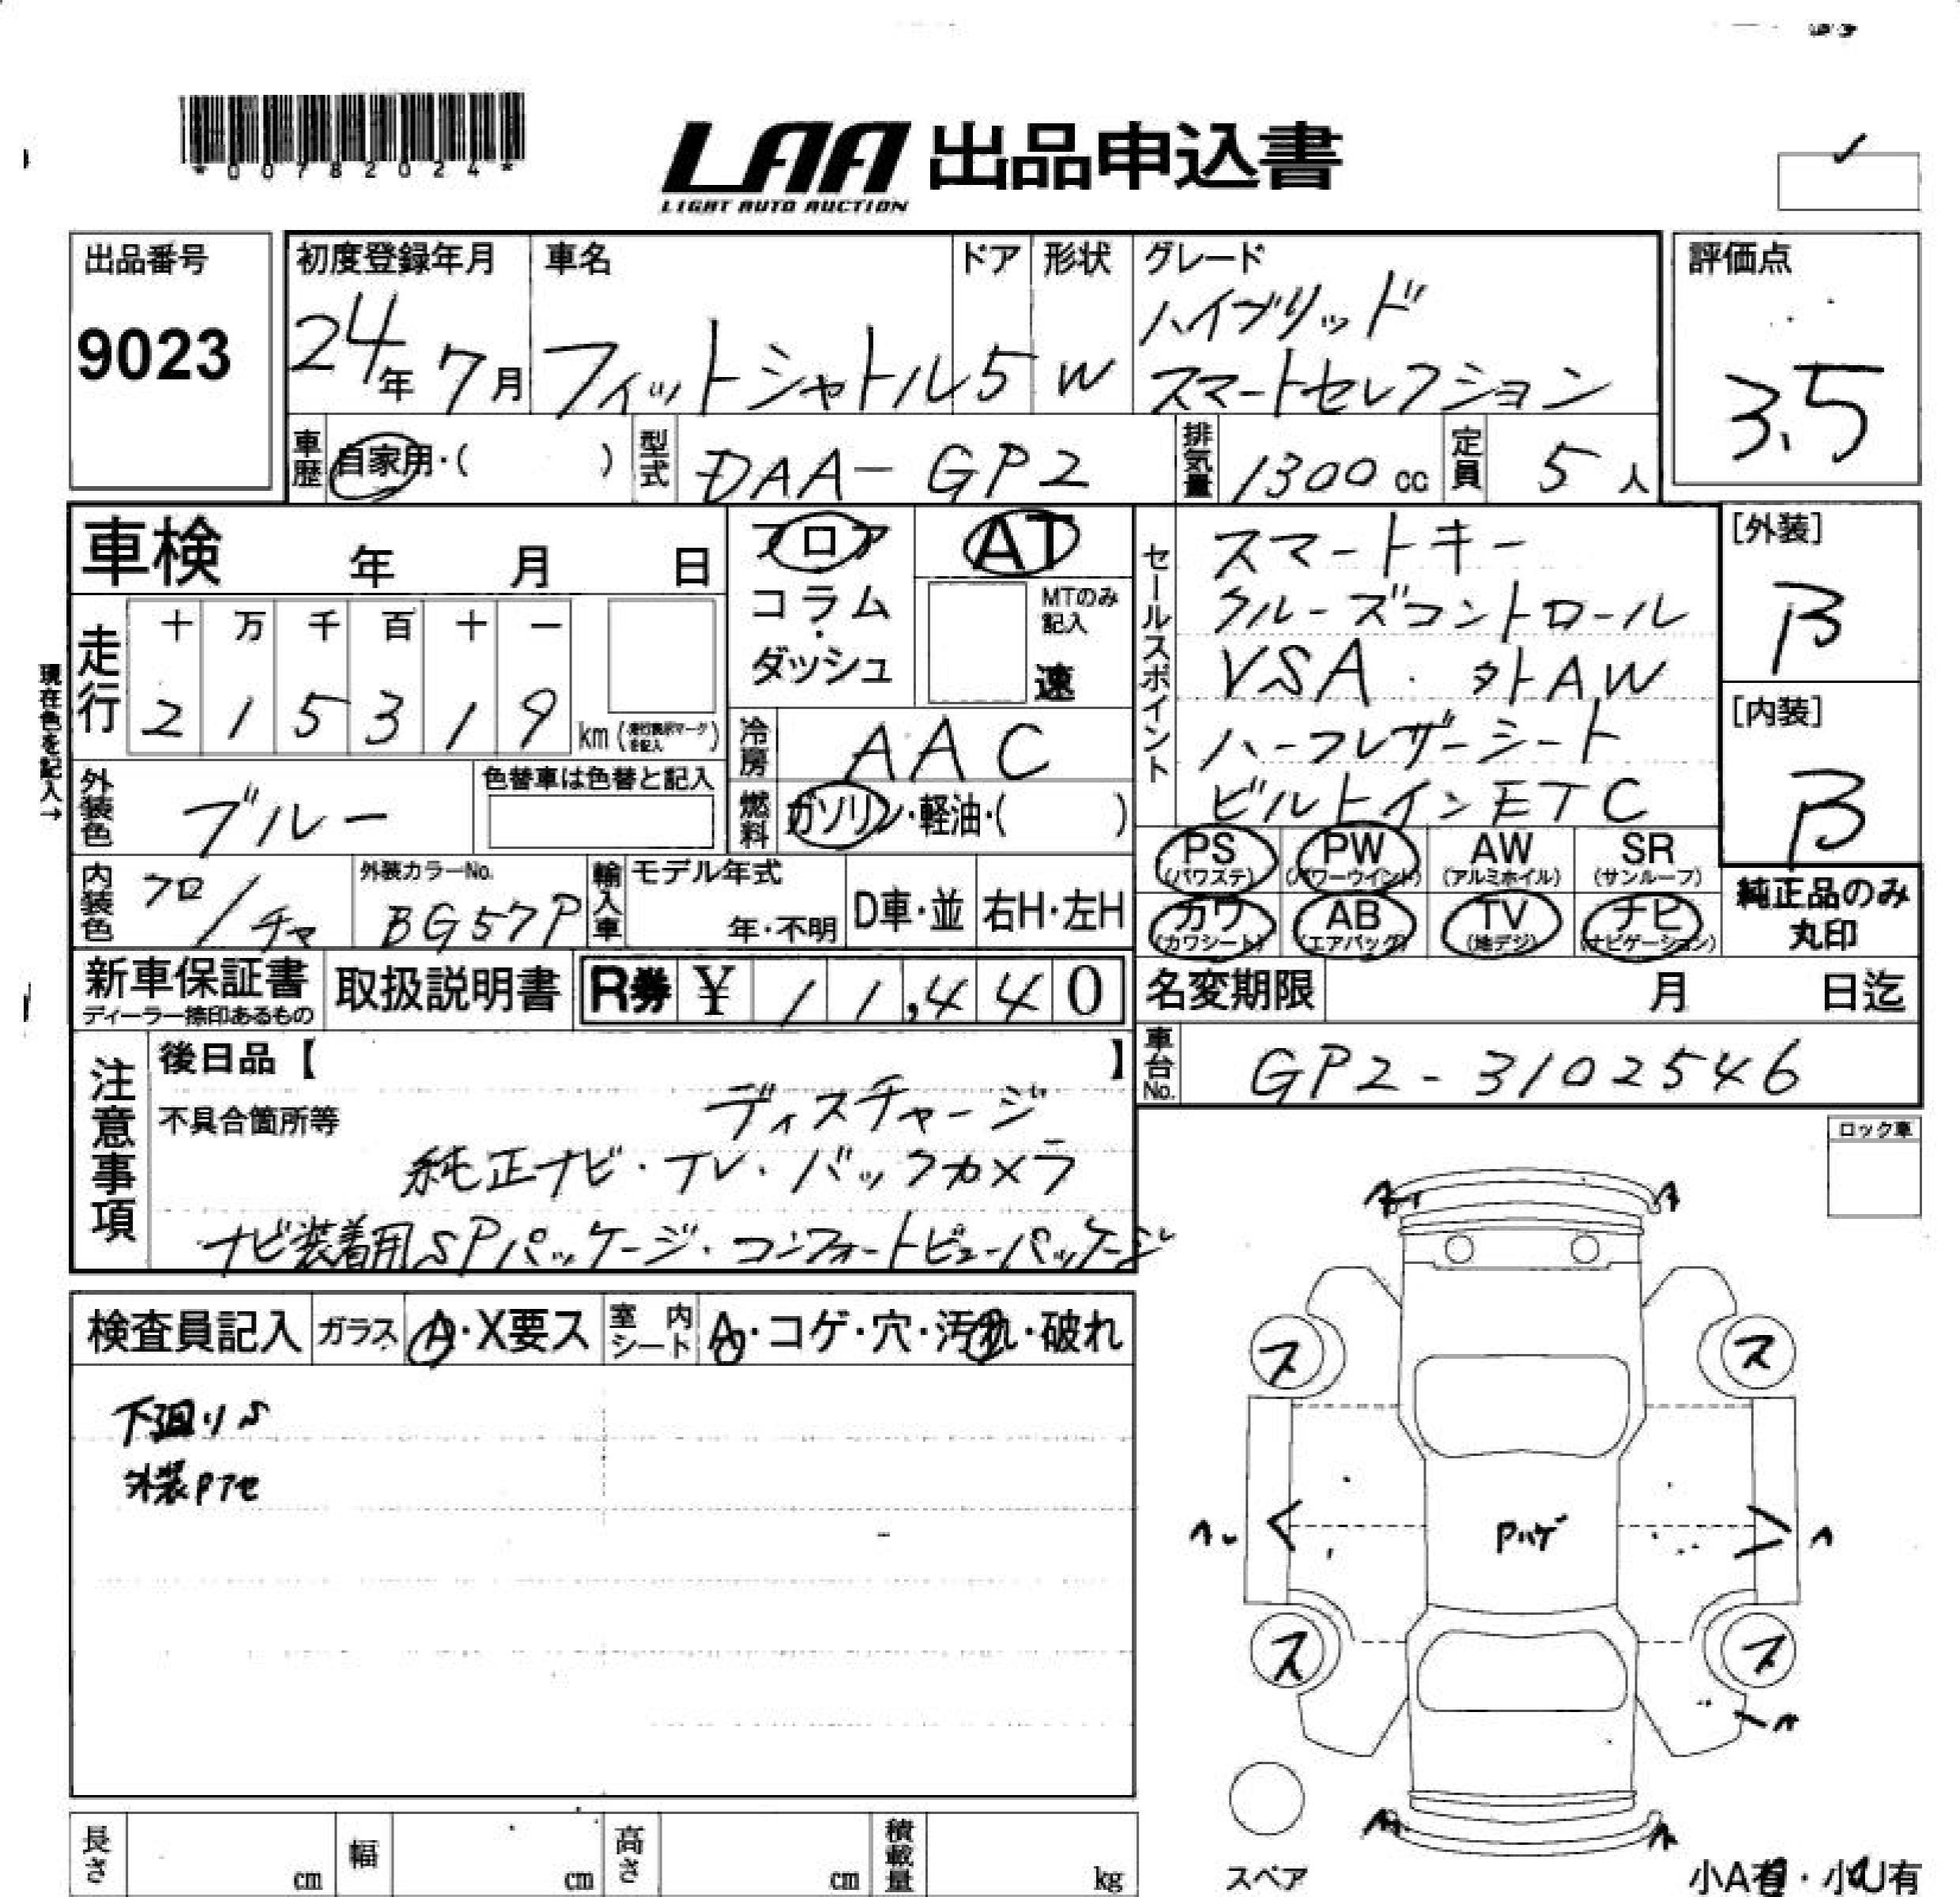 *00782024*
LAA 出品申込書
LIGHT AUTO AUCTION
出品番号
9023
初度登録年月
24年 7月
車名
フィットシャトル
ドア
5
形状
W
グレード
ハイブリッド
スマートセレクション
評価点
3.5
車歴
自家用・( )
型式
DAA-GP2
排気量
1300cc
定員
5人
車検 年 月 日
フロア
コラム
・
ダッシュ
AT
MTのみ
記入
速
セールスポイント
スマートキー
クルーズコントロール
VSA・外AW
ハーフレザーシート
ビルトインETC
[外装]
B
[内装]
B
現在色を記入→
走行
十 万 千 百 十 一
2 1 5 3 1 9 km
冷房
AAC
燃料
ガソリン・軽油・( )
外装色
ブルー
色替車は色替と記入
内装色
クロ/チャ
外装カラーNo.
BG57P
輸入車
モデル年式
年・不明
D車・並
右H・左H
PS
(パワステ)
PW
(パワーウインド)
AW
(アルミホイル)
SR
(サンルーフ)
カワ
(カワシート)
AB
(エアバック)
TV
(地デジ)
ナビ
(ナビゲーション)
純正品のみ
丸印
新車保証書
ディーラー捺印あるもの
取扱説明書
R券 ¥11,440
名変期限 月 日迄
車台No.
GP2-3102546
注意事項
後日品【 】
不具合箇所等
ディスチャージ
純正ナビ・TV・バックカメラ
ナビ装着用SPパッケージ・コンフォートビューパッケージ
ロック車
検査員記入
ガラス
A・X要ス
室内シート
A・コゲ・穴・汚れ・破れ
下廻りS
外装Pアセ
ス
ス
Pハゲ
ス
ス
スペア
小A有・小U有
長さ cm
幅 cm
高さ cm
積載量 kg